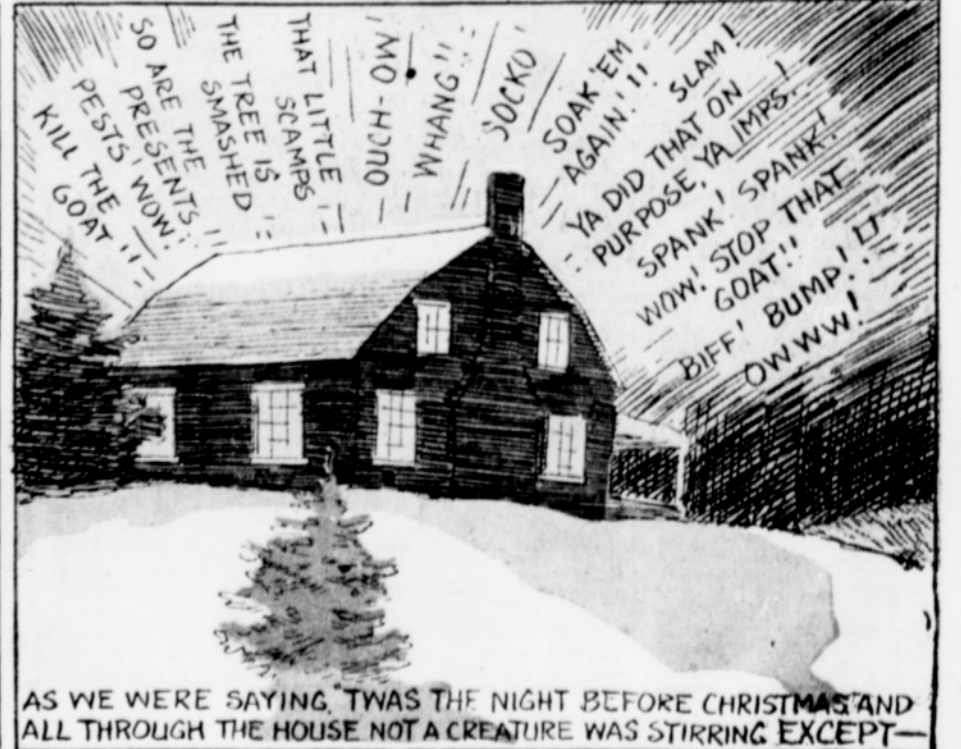 KILL THE
GOAT!!!
PESTS! WOW!
SO ARE THE
PRESENTS!!
THE TREE IS
SMASHED!!
THAT LITTLE
SCAMPS!
OUCH-OW!
WHANG!!
SOCKO!
SOAK 'EM
AGAIN!!!
SLAM!
YA DID THAT ON
PURPOSE, YA IMPS!
SPANK! SPANK!
WOW! STOP THAT
GOAT!!
BIFF! BUMP!!
OWWW!
AS WE WERE SAYING, "TWAS THE NIGHT BEFORE CHRISTMAS" AND
ALL THROUGH THE HOUSE NOT A CREATURE WAS STIRRING EXCEPT—